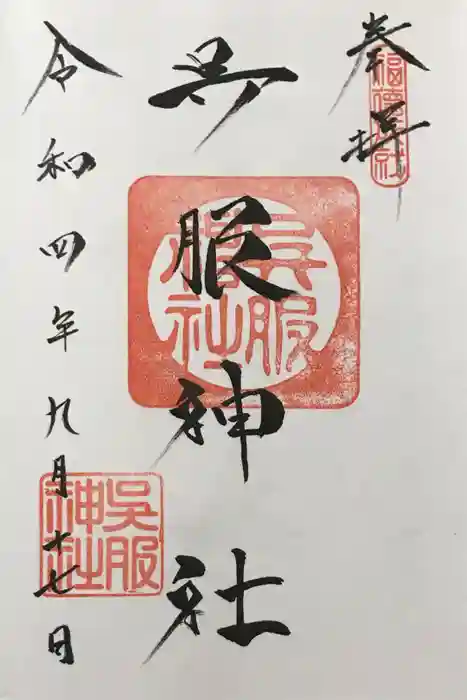 奉拝
福徳社
呉服神社
呉服神社
令和四年九月十七日
呉服神社